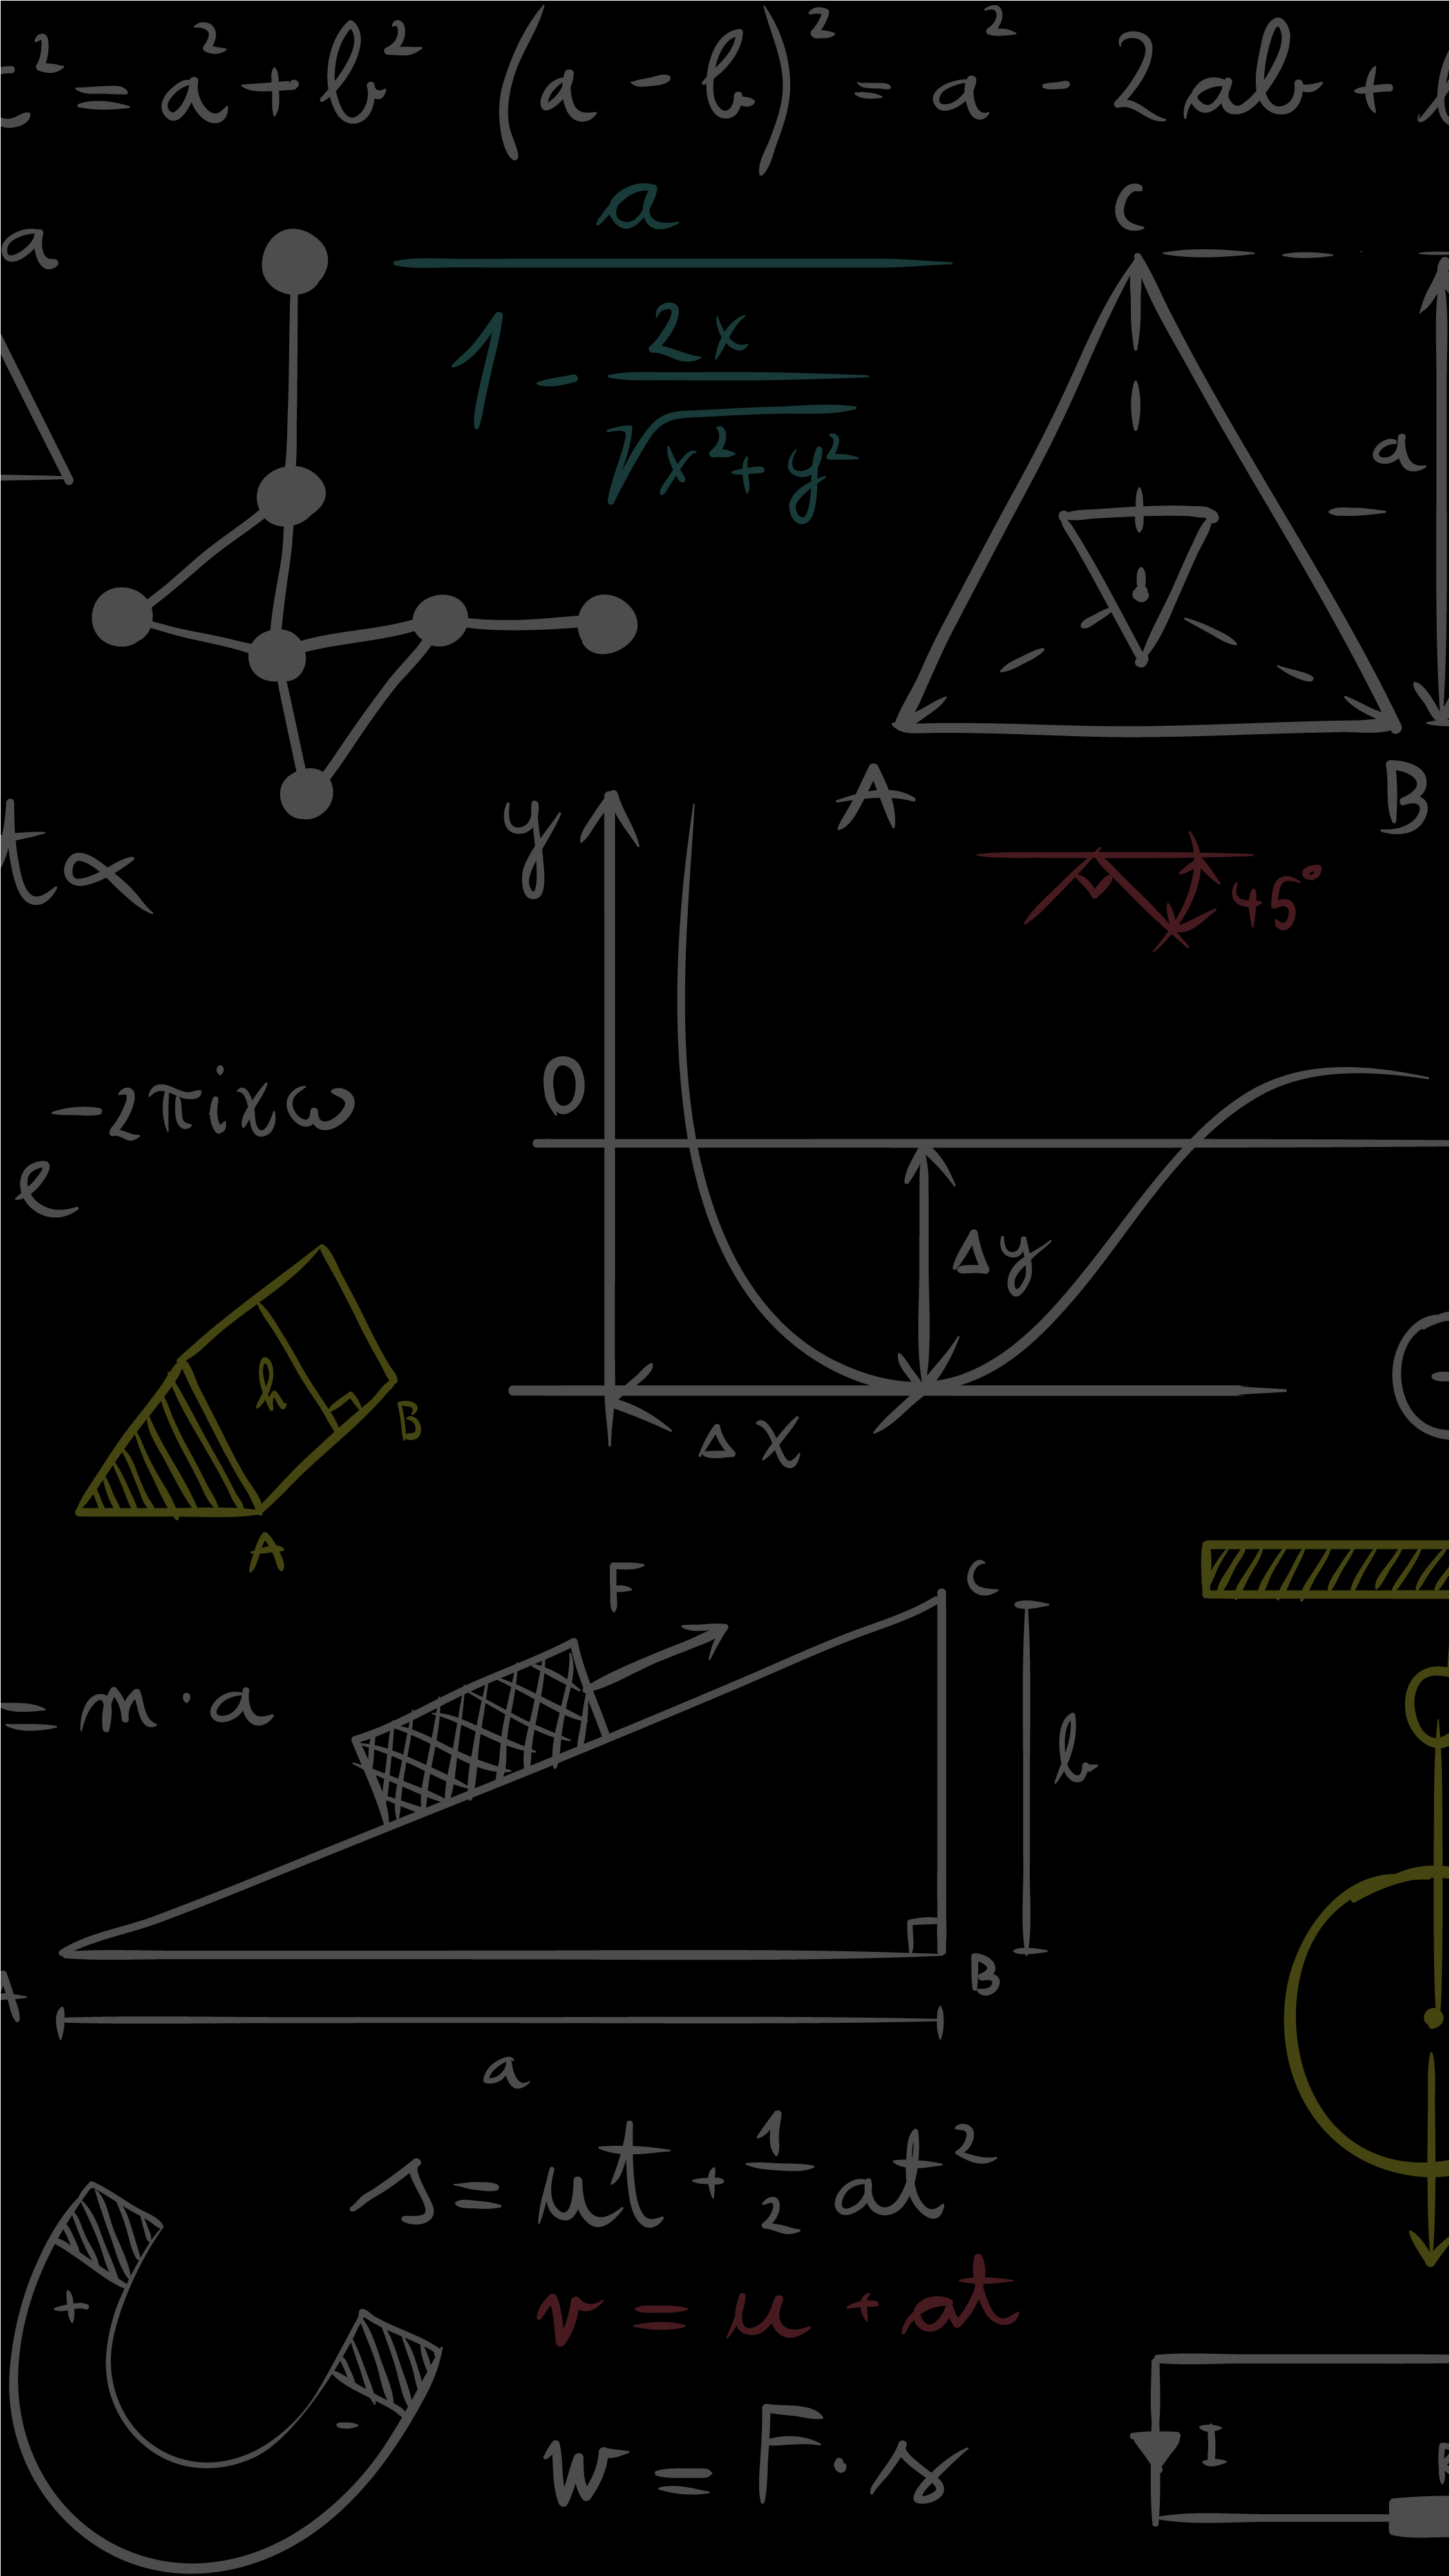 c² = a² + b² (a - b)² = a² - 2ab + b
a
a
1 - 2x
√x² + y²
C
a
A
B
tα
y
45°
0
e^-2πixω
Δy
Δx
h
B
A
F
C
= m · a
b
A
B
a
s = ut + 1/2 at²
v = u + at
+
-
w = F · s
I
R